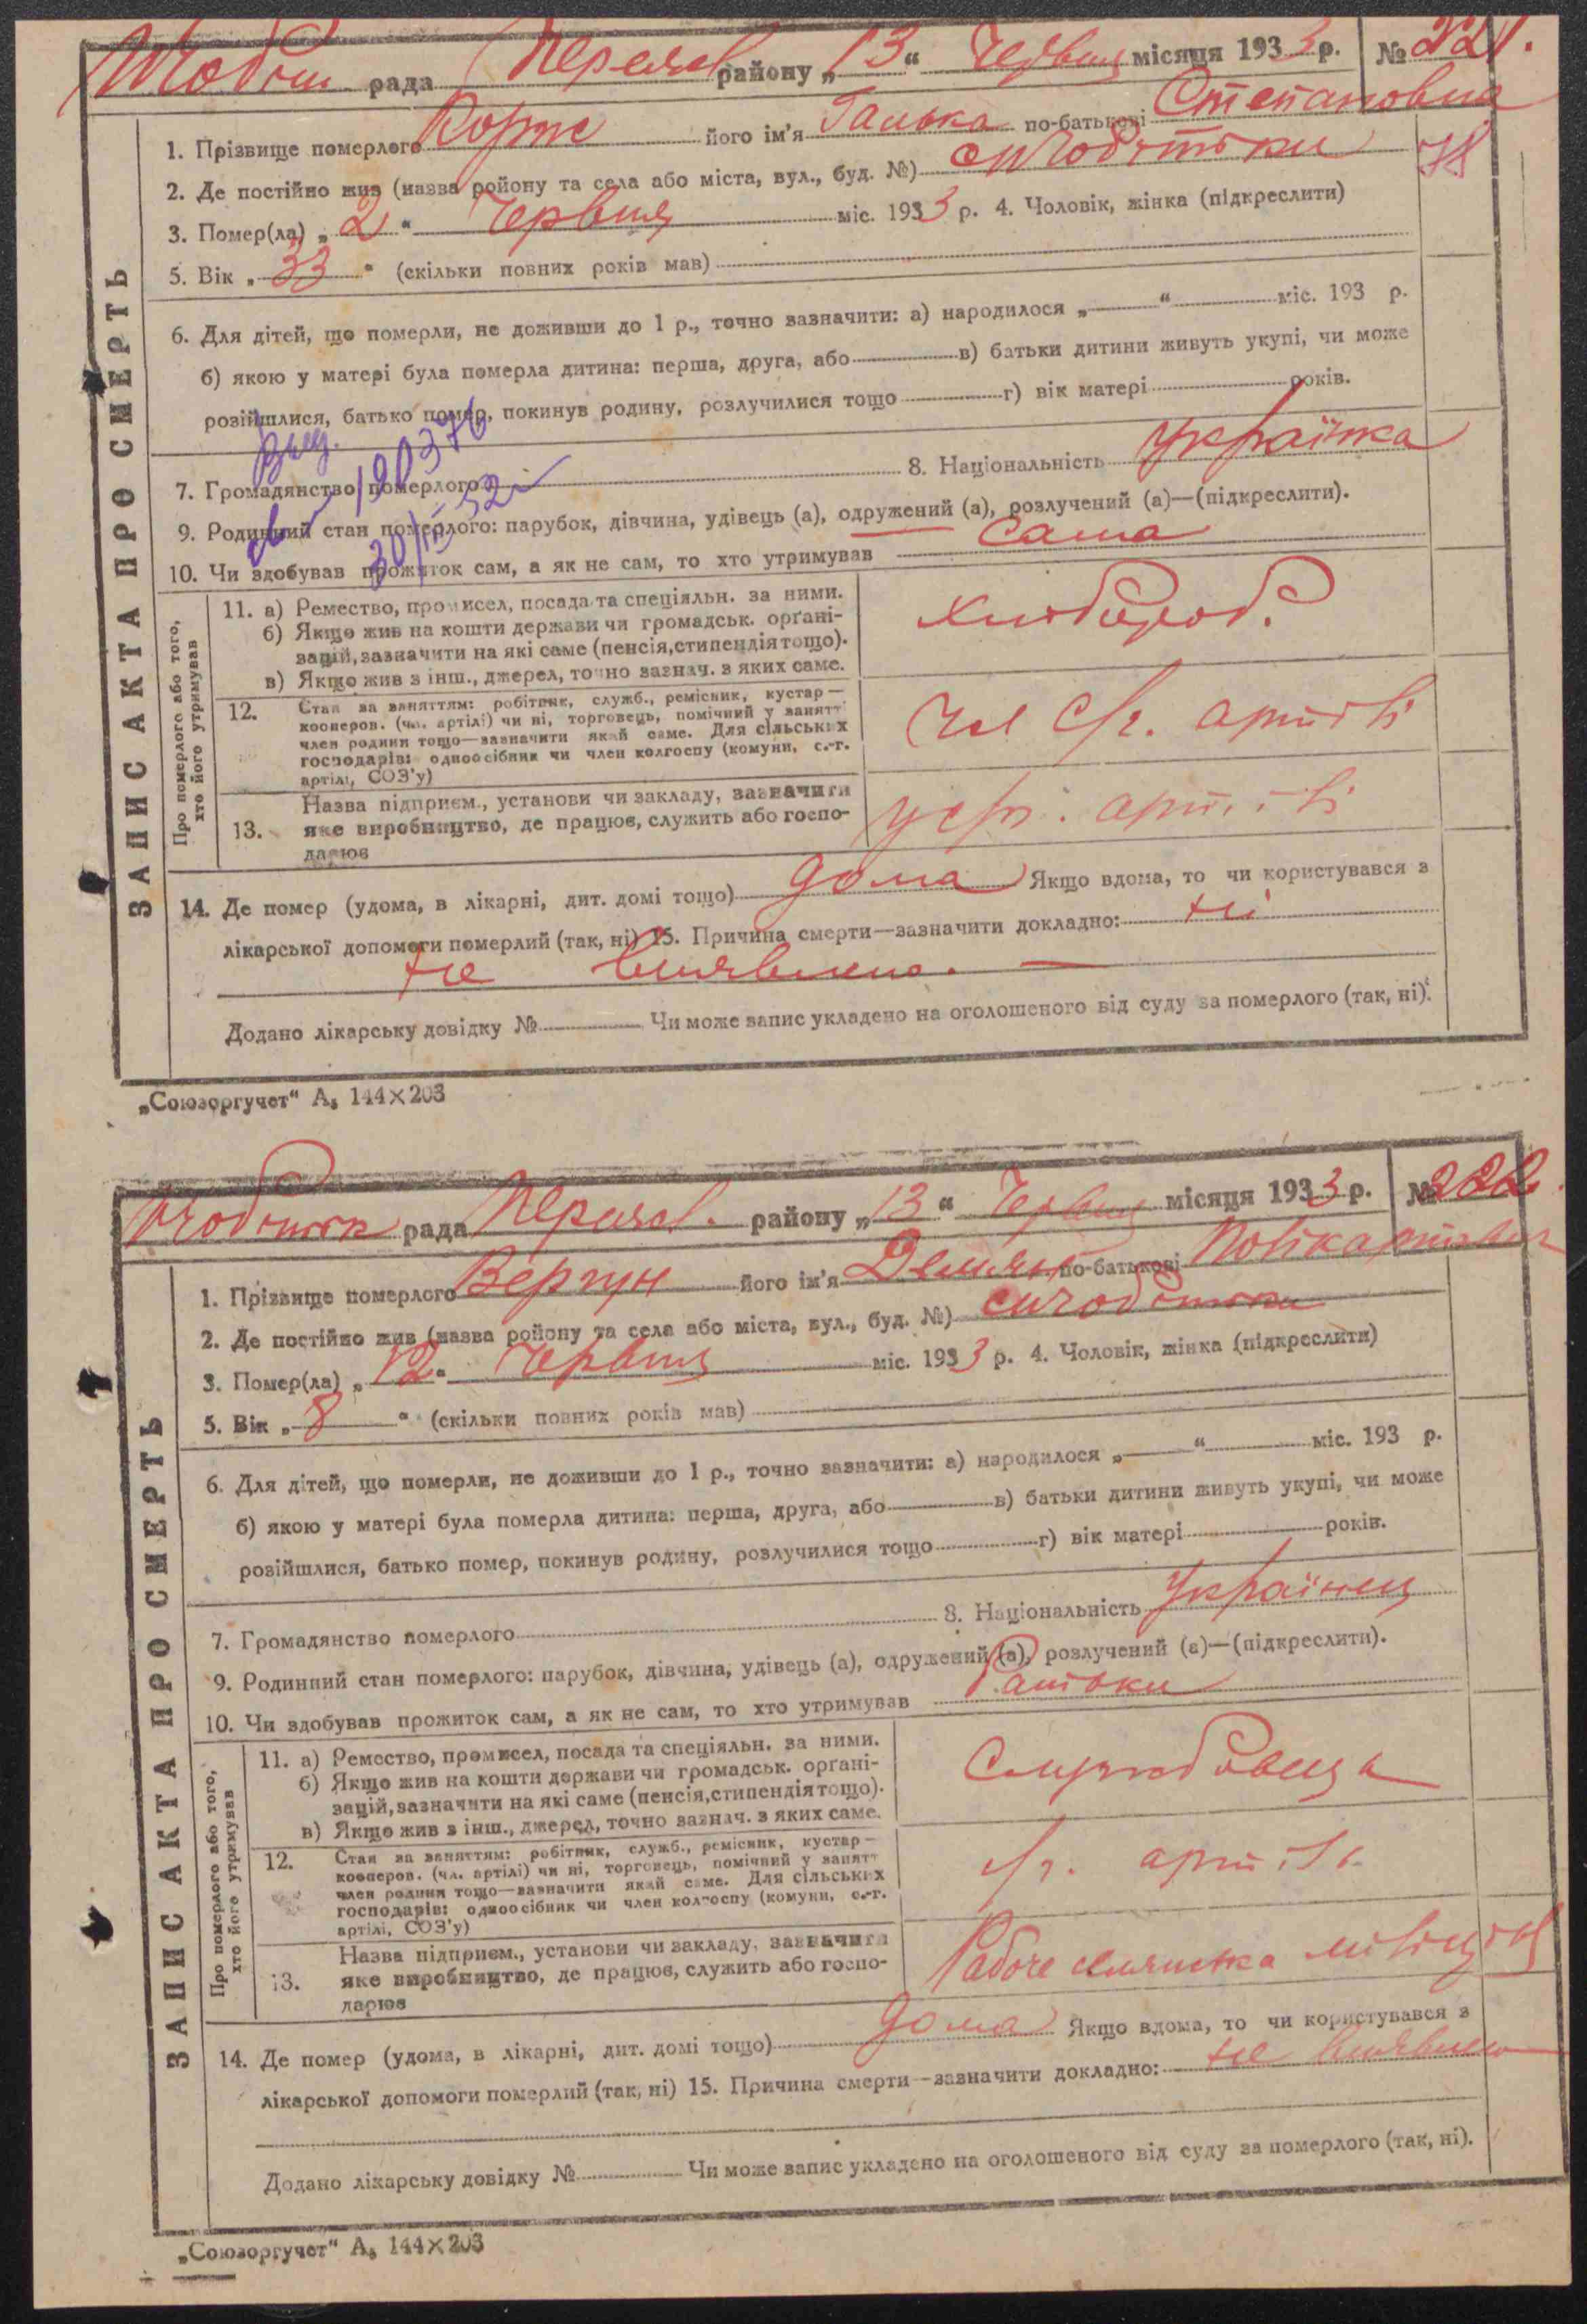 рада району „13“ Червня місяця 1933 р. № 221.
ЗАПИС АКТА ПРО СМЕРТЬ
1. Прізвище померлого його ім'я Ганька по-батькові Степановна
2. Де постійно жив (назва ройону та села або міста, вул., буд. №)
78
3. Помер(ла) „2“ Червня міс. 1933 р. 4. Чоловік, жінка (підкреслити)
5. Вік „33“ (скільки повних років мав)
6. Для дітей, що померли, не доживши до 1 р., точно зазначити: а) народилося „ “ міс. 193 р.
б) якою у матері була померла дитина: перша, друга, або в) батьки дитини живуть укупі, чи може
розійшлися, батько помер, покинув родину, розлучилися тощо г) вік матері років.
7. Громадянство померлого 8. Національність Українка
9. Родинний стан померлого: парубок, дівчина, удівець (а), одружений (а), розлучений (а)—(підкреслити).
10. Чи здобував прожиток сам, а як не сам, то хто утримував сама
Про померлого або того, хто його утримував
11. а) Ремество, промисел, посада та спеціяльн. за ними.
б) Якщо жив на кошти держави чи громадськ. орґані-
зацій, зазначити на які саме (пенсія, стипендія тощо).
в) Якщо жив з інш., джерел, точно зазнач. з яких саме.
Хлібороб.
12. Стан за заняттям: робітник, служб., ремісник, кустар—
кооперов. (чл. артілі) чи ні, торговець, помічний у занятт
член родини тощо—зазначити який саме. Для сільських
господарів: одноосібник чи член колгоспу (комуни, с.-г.
артілі, СОЗ'у)
Чл с/г. артілі
13. Назва підприєм., установи чи закладу, зазначити
яке виробництво, де працює, служить або госпо-
дарює
артілі
14. Де помер (удома, в лікарні, дит. домі тощо) дома Якщо вдома, то чи користувався з
лікарської допомоги померлий (так, ні) 15. Причина смерти—зазначити докладно: ні
не виявлено. —
Додано лікарську довідку № Чи може запис укладено на оголошеного від суду за померлого (так, ні).
„Союзоргучет“ А₅ 144×203
рада району „13“ Червня місяця 1933 р. № 222.
ЗАПИС АКТА ПРО СМЕРТЬ
1. Прізвище померлого Вергун його ім'я Демян по-батькові Полікарпович
2. Де постійно жив (назва ройону та села або міста, вул., буд. №)
3. Помер(ла) „12“ Червня міс. 1933 р. 4. Чоловік, жінка (підкреслити)
5. Вік „8“ (скільки повних років мав)
6. Для дітей, що померли, не доживши до 1 р., точно зазначити: а) народилося „ “ міс. 193 р.
б) якою у матері була померла дитина: перша, друга, або в) батьки дитини живуть укупі, чи може
розійшлися, батько помер, покинув родину, розлучилися тощо г) вік матері років.
7. Громадянство померлого 8. Національність Українец
9. Родинний стан померлого: парубок, дівчина, удівець (а), одружений (а), розлучений (а)—(підкреслити).
10. Чи здобував прожиток сам, а як не сам, то хто утримував Батьки
Про померлого або того, хто його утримував
11. а) Ремество, промисел, посада та спеціяльн. за ними.
б) Якщо жив на кошти держави чи громадськ. орґані-
зацій, зазначити на які саме (пенсія, стипендія тощо).
в) Якщо жив з інш., джерел, точно зазнач. з яких саме.
Службовець
12. Стан за заняттям: робітник, служб., ремісник, кустар—
кооперов. (чл. артілі) чи ні, торговець, помічний у занятт
член родини тощо—зазначити який саме. Для сільських
господарів: одноосібник чи член колгоспу (комуни, с.-г.
артілі, СОЗ'у)
с/г. артіль
13. Назва підприєм., установи чи закладу, зазначити
яке виробництво, де працює, служить або госпо-
дарює
міліція
14. Де помер (удома, в лікарні, дит. домі тощо) дома Якщо вдома, то чи користувався з
лікарської допомоги померлий (так, ні) 15. Причина смерти—зазначити докладно: не виявлено
Додано лікарську довідку № Чи може запис укладено на оголошеного від суду за померлого (так, ні).
„Союзоргучет“ А₅ 144×203